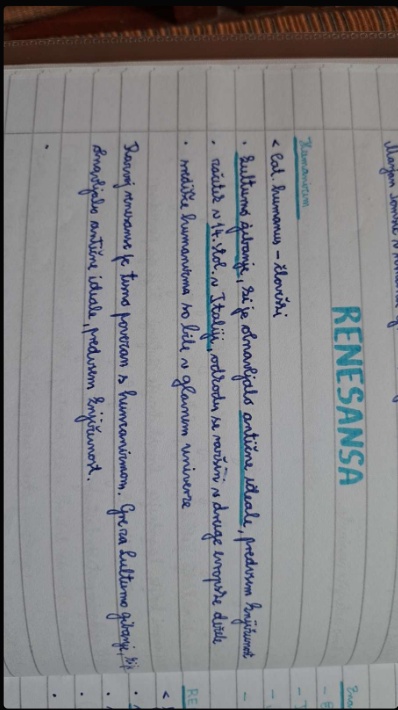 RENESANSA
Humanizem
< lat. humanus – človeški
• kulturno gibanje, ki je obnavljalo antične ideale, predvsem književnost
• začetek v 14. stol. v Italiji, od tod se razširi v druge evropske države
• središče humanizma so bile v glavnem univerze
Razvoj renesanse je tesno povezan s humanizmom. Gre za kulturno gibanje, ki je
obnavljalo antične ideale, predvsem književnost.
RE